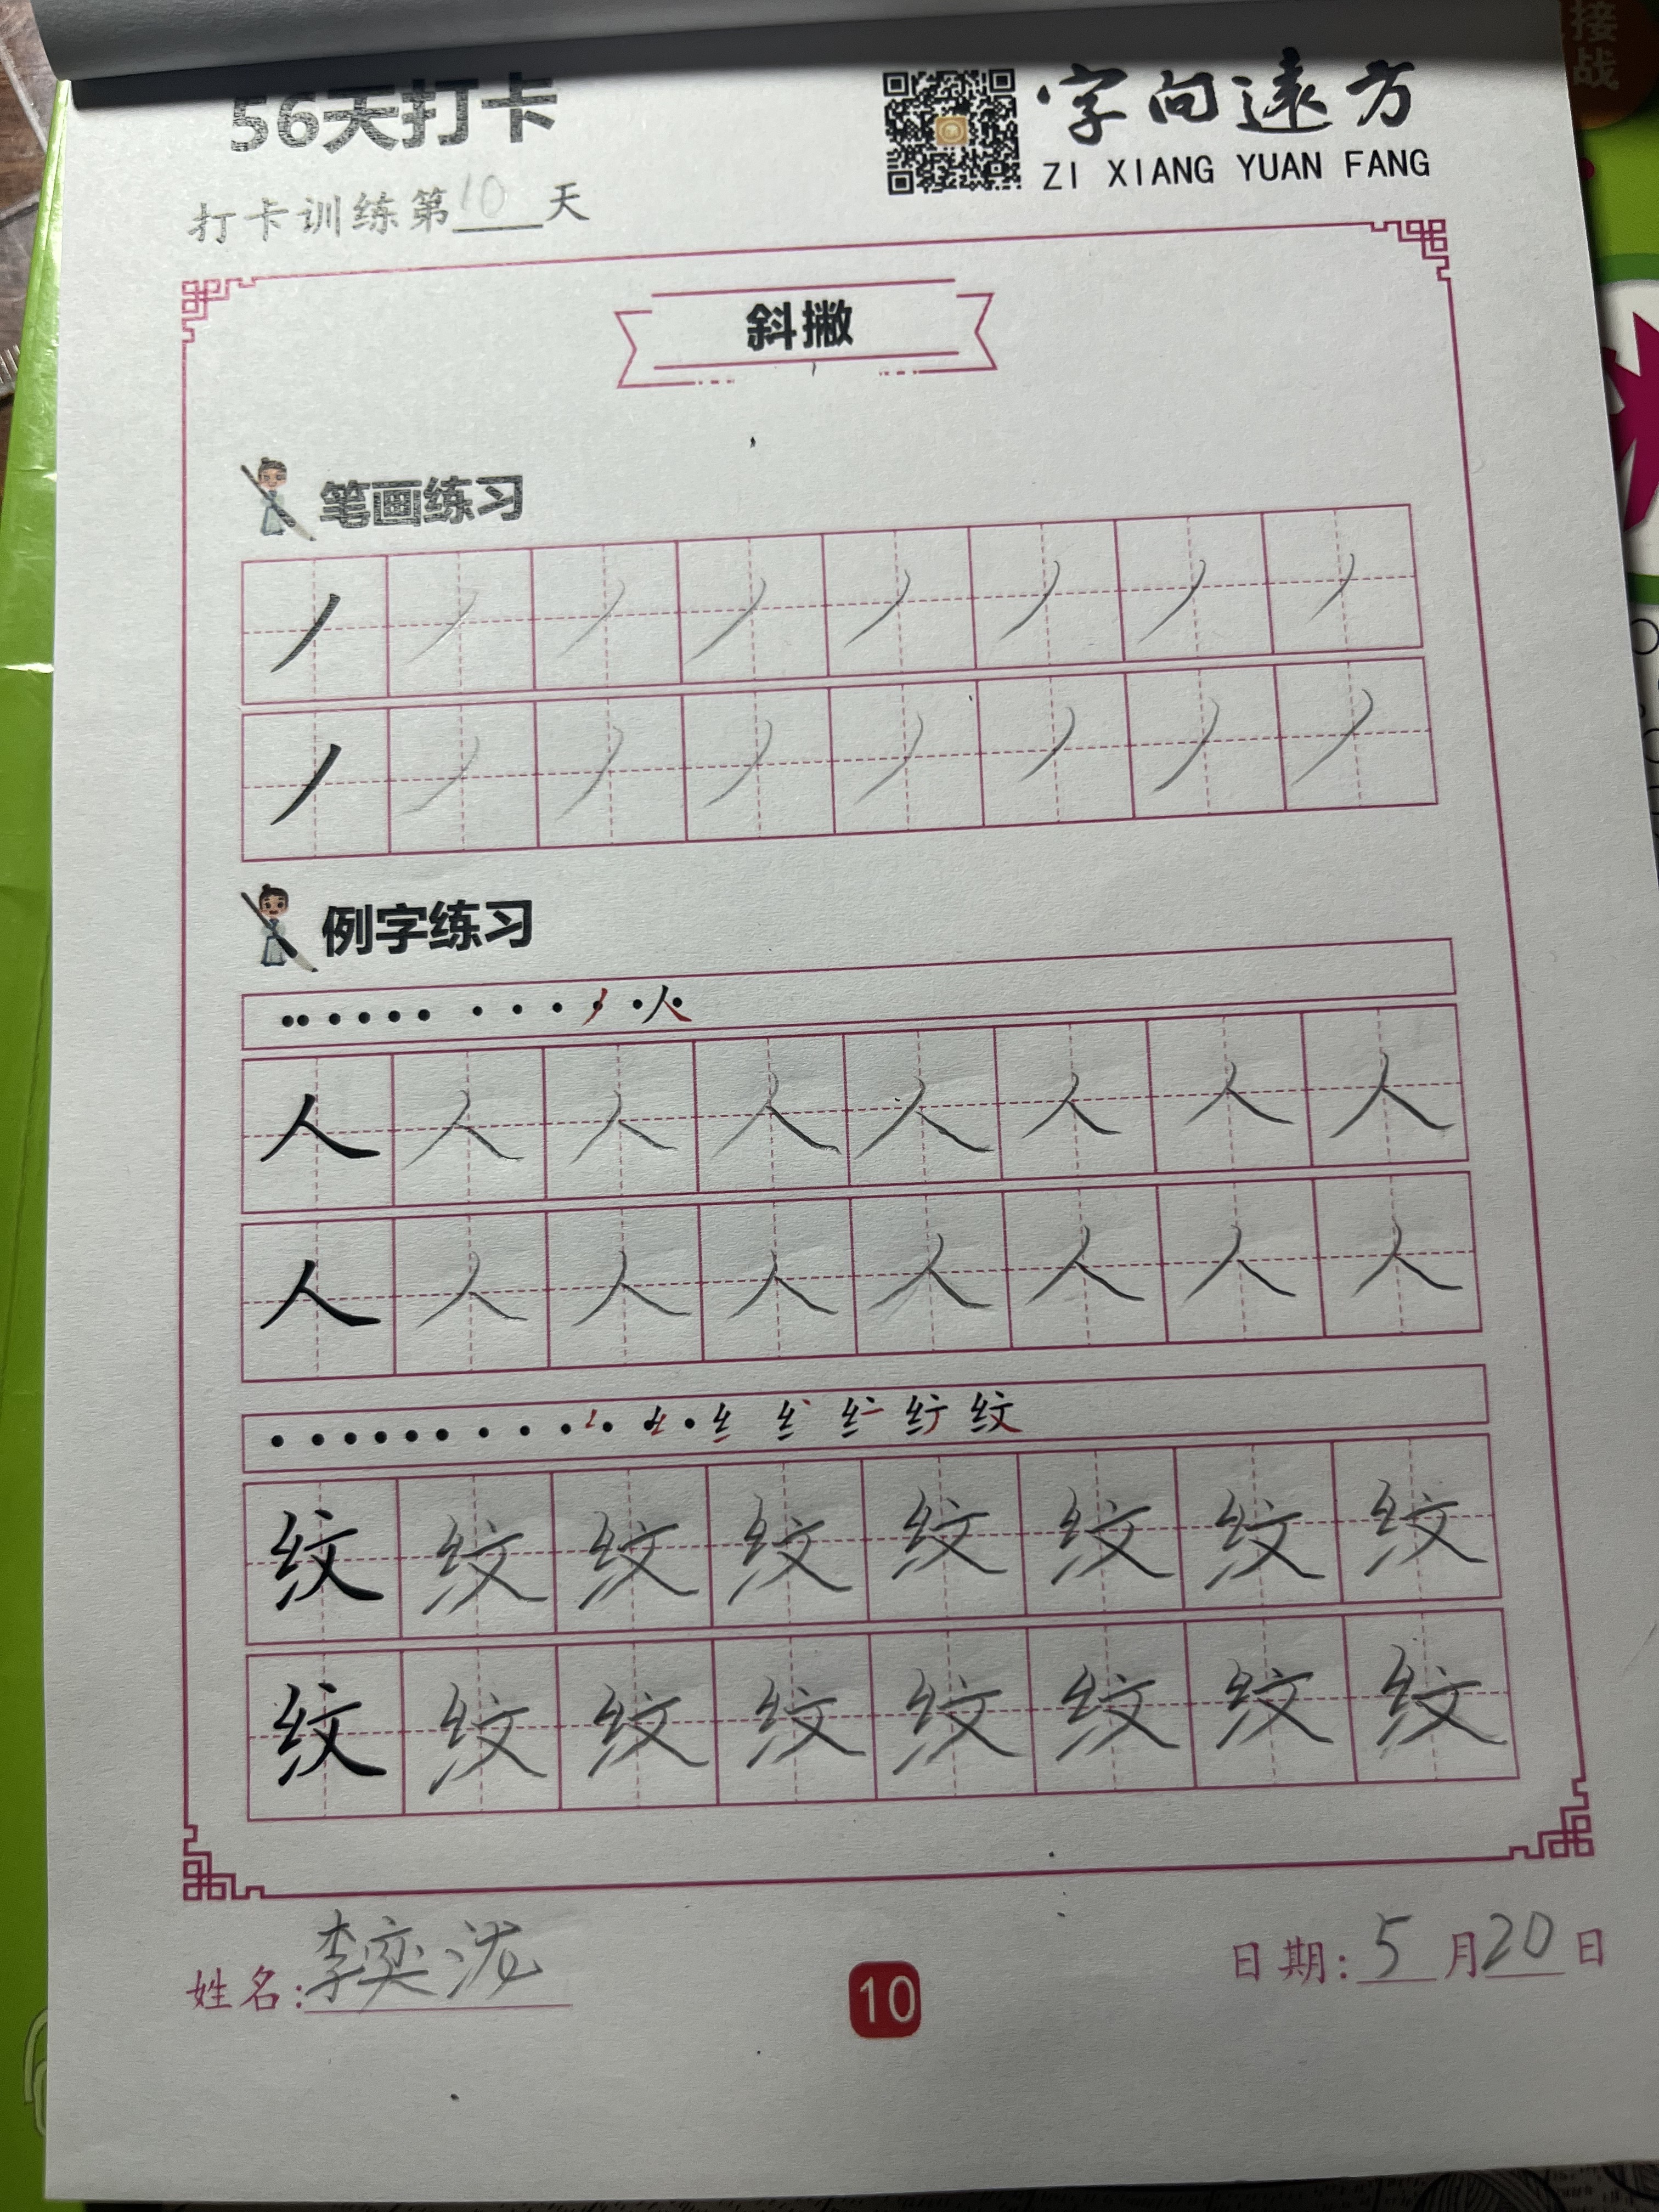 接
战
56天打卡
字向遠方
ZI XIANG YUAN FANG
打卡训练第10天
斜撇
笔画练习
例字练习
人 人 人 人 人 人 人 人
人 人 人 人 人 人 人 人
纟 纟 纟 纹
纹 纹 纹 纹 纹 纹 纹 纹
纹 纹 纹 纹 纹 纹 纹 纹
姓名:李奕泷
10
日期:5月20日